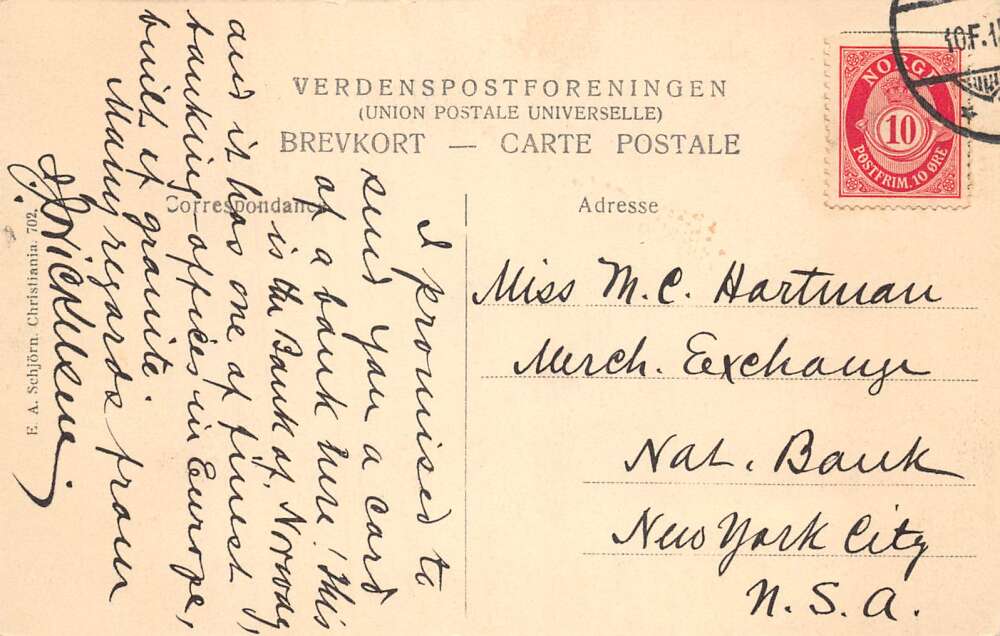 VERDENSPOSTFORENINGEN
(UNION POSTALE UNIVERSELLE)
BREVKORT — CARTE POSTALE
Correspondance
Adresse
NORGE
10
POSTFRIM. 10 ØRE
10.F.1
I promised to
send you a card
of a bank here! This
is the Bank of Norway,
and it has one of finest
banking-offices in Europe,
built of granite.
Many regards from
Miss M.C. Hartman
Merch. Exchange
Nat. Bank
New York City
N.S.A.
E. A. Schjörn. Christiania. 702.